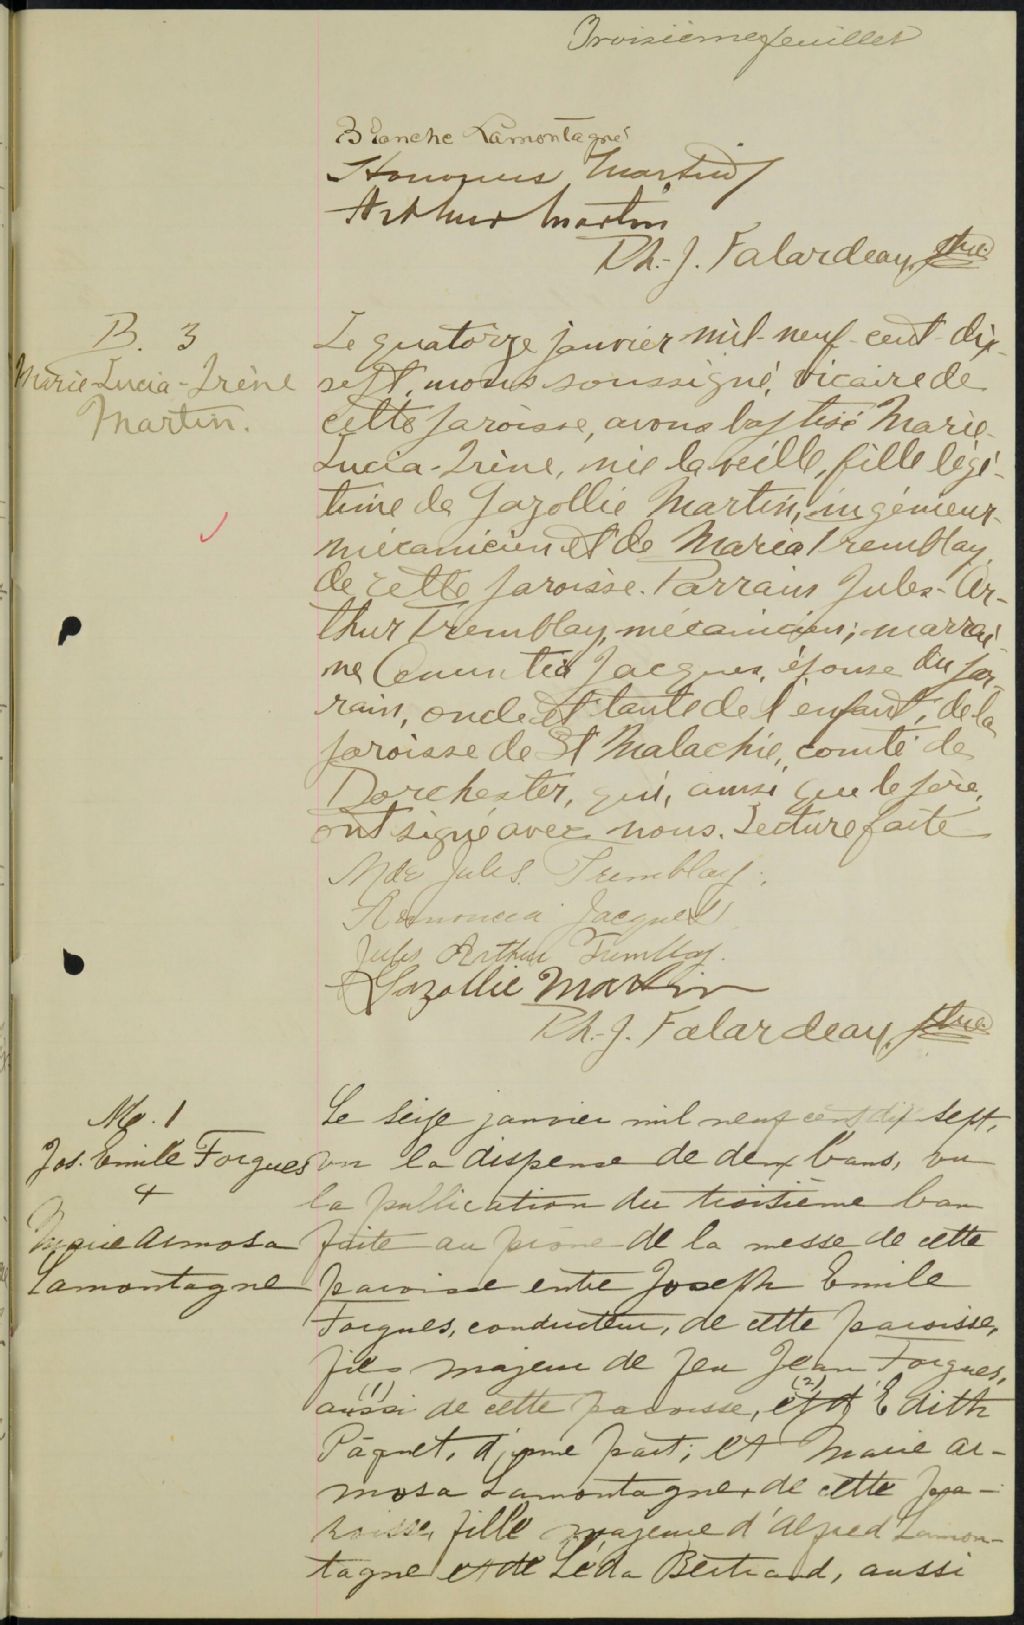 Troisième feuillet
Blanche Lamontagne
Honorius Martin
Arthur Martin
Ph.-J. Falardeau, ptre
B. 3
Marie-Lucia-Irène
Martin.
Le quatorze janvier mil-neuf-cent-dix-
sept, nous soussigné, vicaire de
cette paroisse, avons baptisé Marie-
Lucia-Irène, née la veille, fille légi-
time de Gazollie Martin, ingénieur-
mécanicien et de Maria Tremblay,
de cette paroisse. Parrain Jules-Ar-
thur Tremblay, mécanicien; marrai-
ne Jacques, épouse du par-
rain, oncle et tante de l'enfant, de la
paroisse de St Malachie, comté de
Dorchester, qui, ainsi que le père,
ont signé avec nous. Lecture faite
Mde Jules Tremblay.
Jacques
Jules Arthur Tremblay.
Gazollie Martin
Ph.-J. Falardeau, ptre
M. 1
Jos. Emile Forgues
&
Marie Armosa
Lamontagne
Le seize janvier mil neuf cent dix sept,
vu la dispense de deux bans, vu
la publication du troisième ban
faite au prône de la messe de cette
paroisse entre Joseph Emile
Forgues, conducteur, de cette paroisse,
fils majeur de feu Jean Forgues,
(1) (2)
aussi de cette paroisse, et d'Edith
Pâquet, d'une part; et Marie Ar-
mosa Lamontagne, de cette pa-
roisse, fille majeure d'Alfred Lamon-
tagne et de Léda Bertrand, aussi